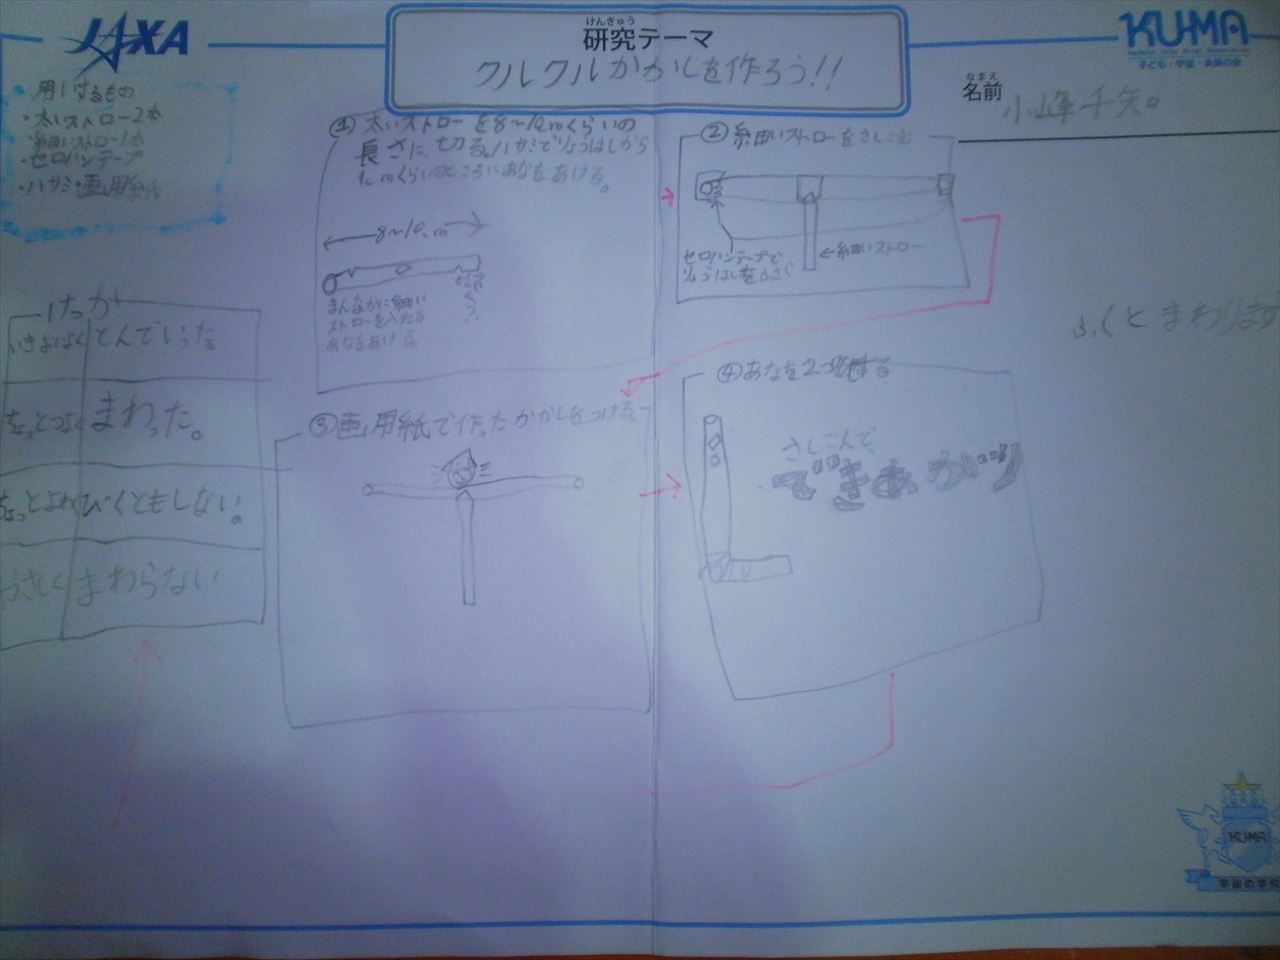 JAXA
けんきゅう
研究テーマ
クルクルかかしを作ろう!!
KU-MA
子ども・宇宙・未来の会
なまえ
名前 小峰千矢。
用いするもの
・太いストロー2本
・細いストロー1本
・セロハンテープ
・ハサミ・画用紙
①太いストローを8〜10cmくらいの
長さに切る。ハサミでりょうはしから
1cmくらいのところにあなをあける。
8〜10cm
まんなかに細い
ストローを入れる
あなをあける。
②細いストローをさしこむ
セロハンテープで
りょうはしをふさぐ
←細いストロー
ふくとまわります
③画用紙で作ったかかしをつける。
④あなを2つあける
さしこんで、
できあがり
けっか
いきおいよく とんでいった。
ちょっとつよく まわった。
ちょっとよわく びくともしない。
やさしく まわらない
KU-MA
宇宙の学校